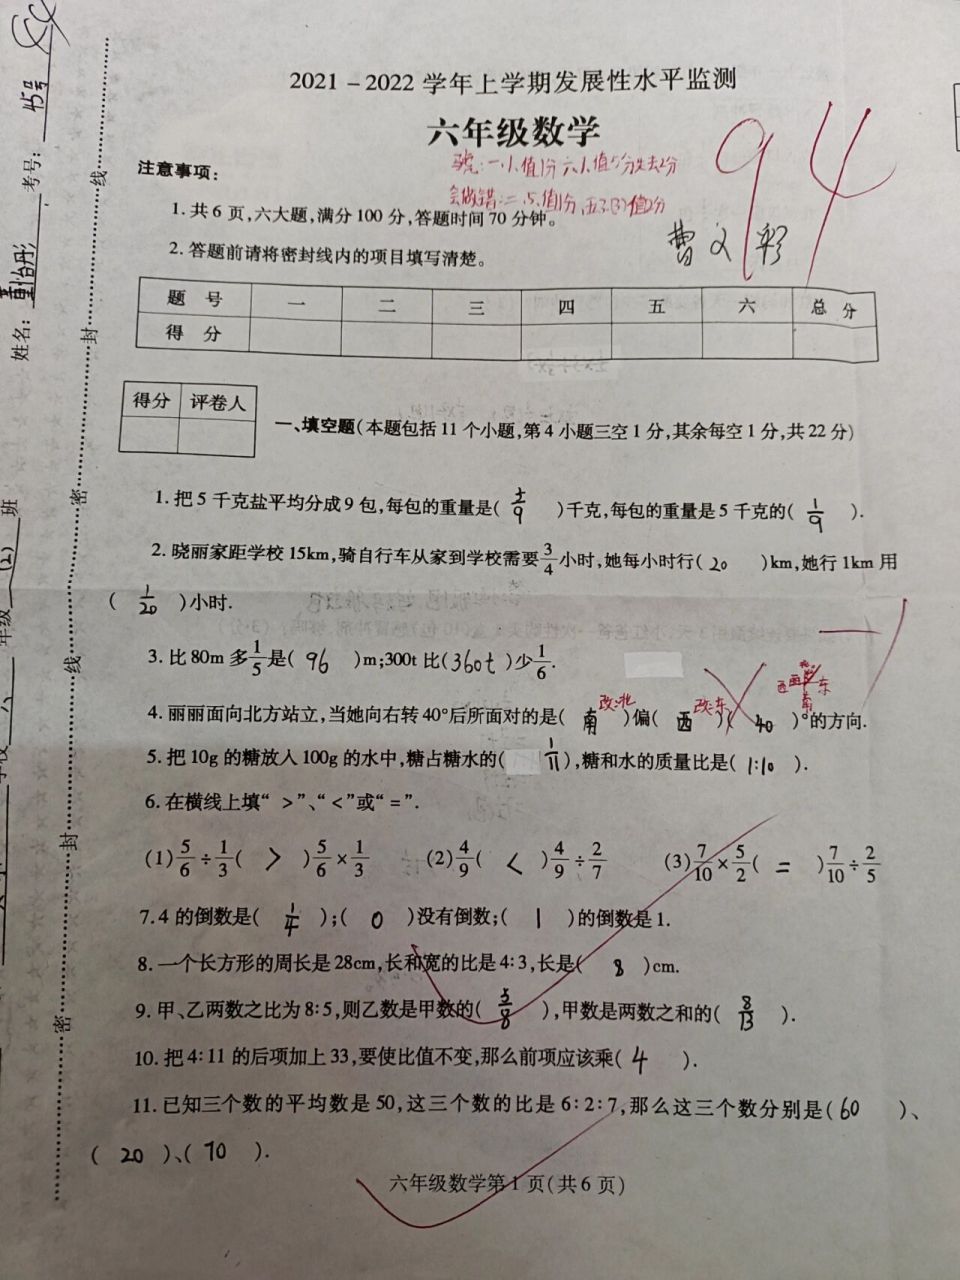 2021-2022学年上学期发展性水平监测
六年级数学
94
注意事项:
会做错:二、5、值1分,
1.共6页,六大题,满分100分,答题时间70分钟。
2.答题前请将密封线内的项目填写清楚。
题 号 一 二 三 四 五 六 总 分
得 分
得分 评卷人
一、填空题(本题包括11个小题,第4小题三空1分,其余每空1分,共22分)
1.把5千克盐平均分成9包,每包的重量是( 5/9 )千克,每包的重量是5千克的( 1/9 ).
2.晓丽家距学校15km,骑自行车从家到学校需要3/4小时,她每小时行( 20 )km,她行1km用
( 1/20 )小时.
3.比80m多1/5是( 96 )m;300t比( 360t )少1/6.
改:北 改:东 西 东 南
4.丽丽面向北方站立,当她向右转40°后所面对的是( 南 )偏( 西 )( 40 )°的方向.
5.把10g的糖放入100g的水中,糖占糖水的( 1/11 ),糖和水的质量比是( 1:10 ).
6.在横线上填“ >”、“<”或“=”.
(1)5/6÷1/3( > )5/6×1/3 (2)4/9( < )4/9÷2/7 (3)7/10×5/2( = )7/10÷2/5
7.4的倒数是( 1/4 );( 0 )没有倒数;( 1 )的倒数是1.
8.一个长方形的周长是28cm,长和宽的比是4:3,长是( 8 )cm.
9.甲、乙两数之比为8:5,则乙数是甲数的( 5/8 ),甲数是两数之和的( 8/13 ).
10.把4:11的后项加上33,要使比值不变,那么前项应该乘( 4 ).
11.已知三个数的平均数是50,这三个数的比是6:2:7,那么这三个数分别是( 60 )、
( 20 )、( 70 ).
六年级数学第1页(共6页)
考号: 45号
姓名:
班
(2)
年级
六
学校
密 封 线 密 封 线